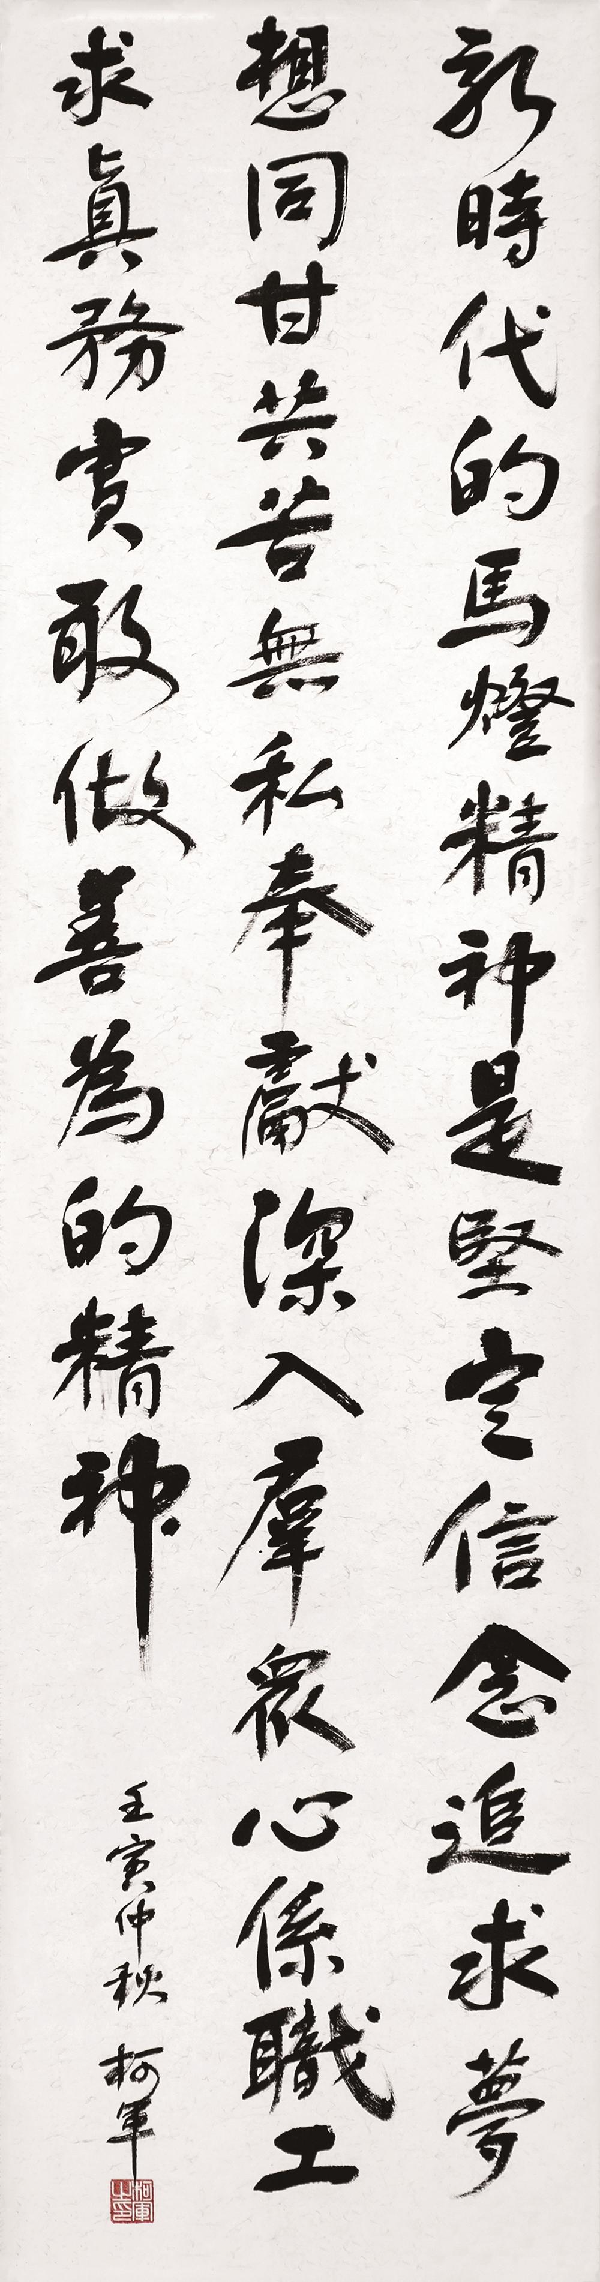 新時代的馬燈精神是堅定信念追求夢
想同甘共苦無私奉獻深入羣眾心係職工
求真務實敢做善為的精神
壬寅仲秋 柯軍
柯軍之印